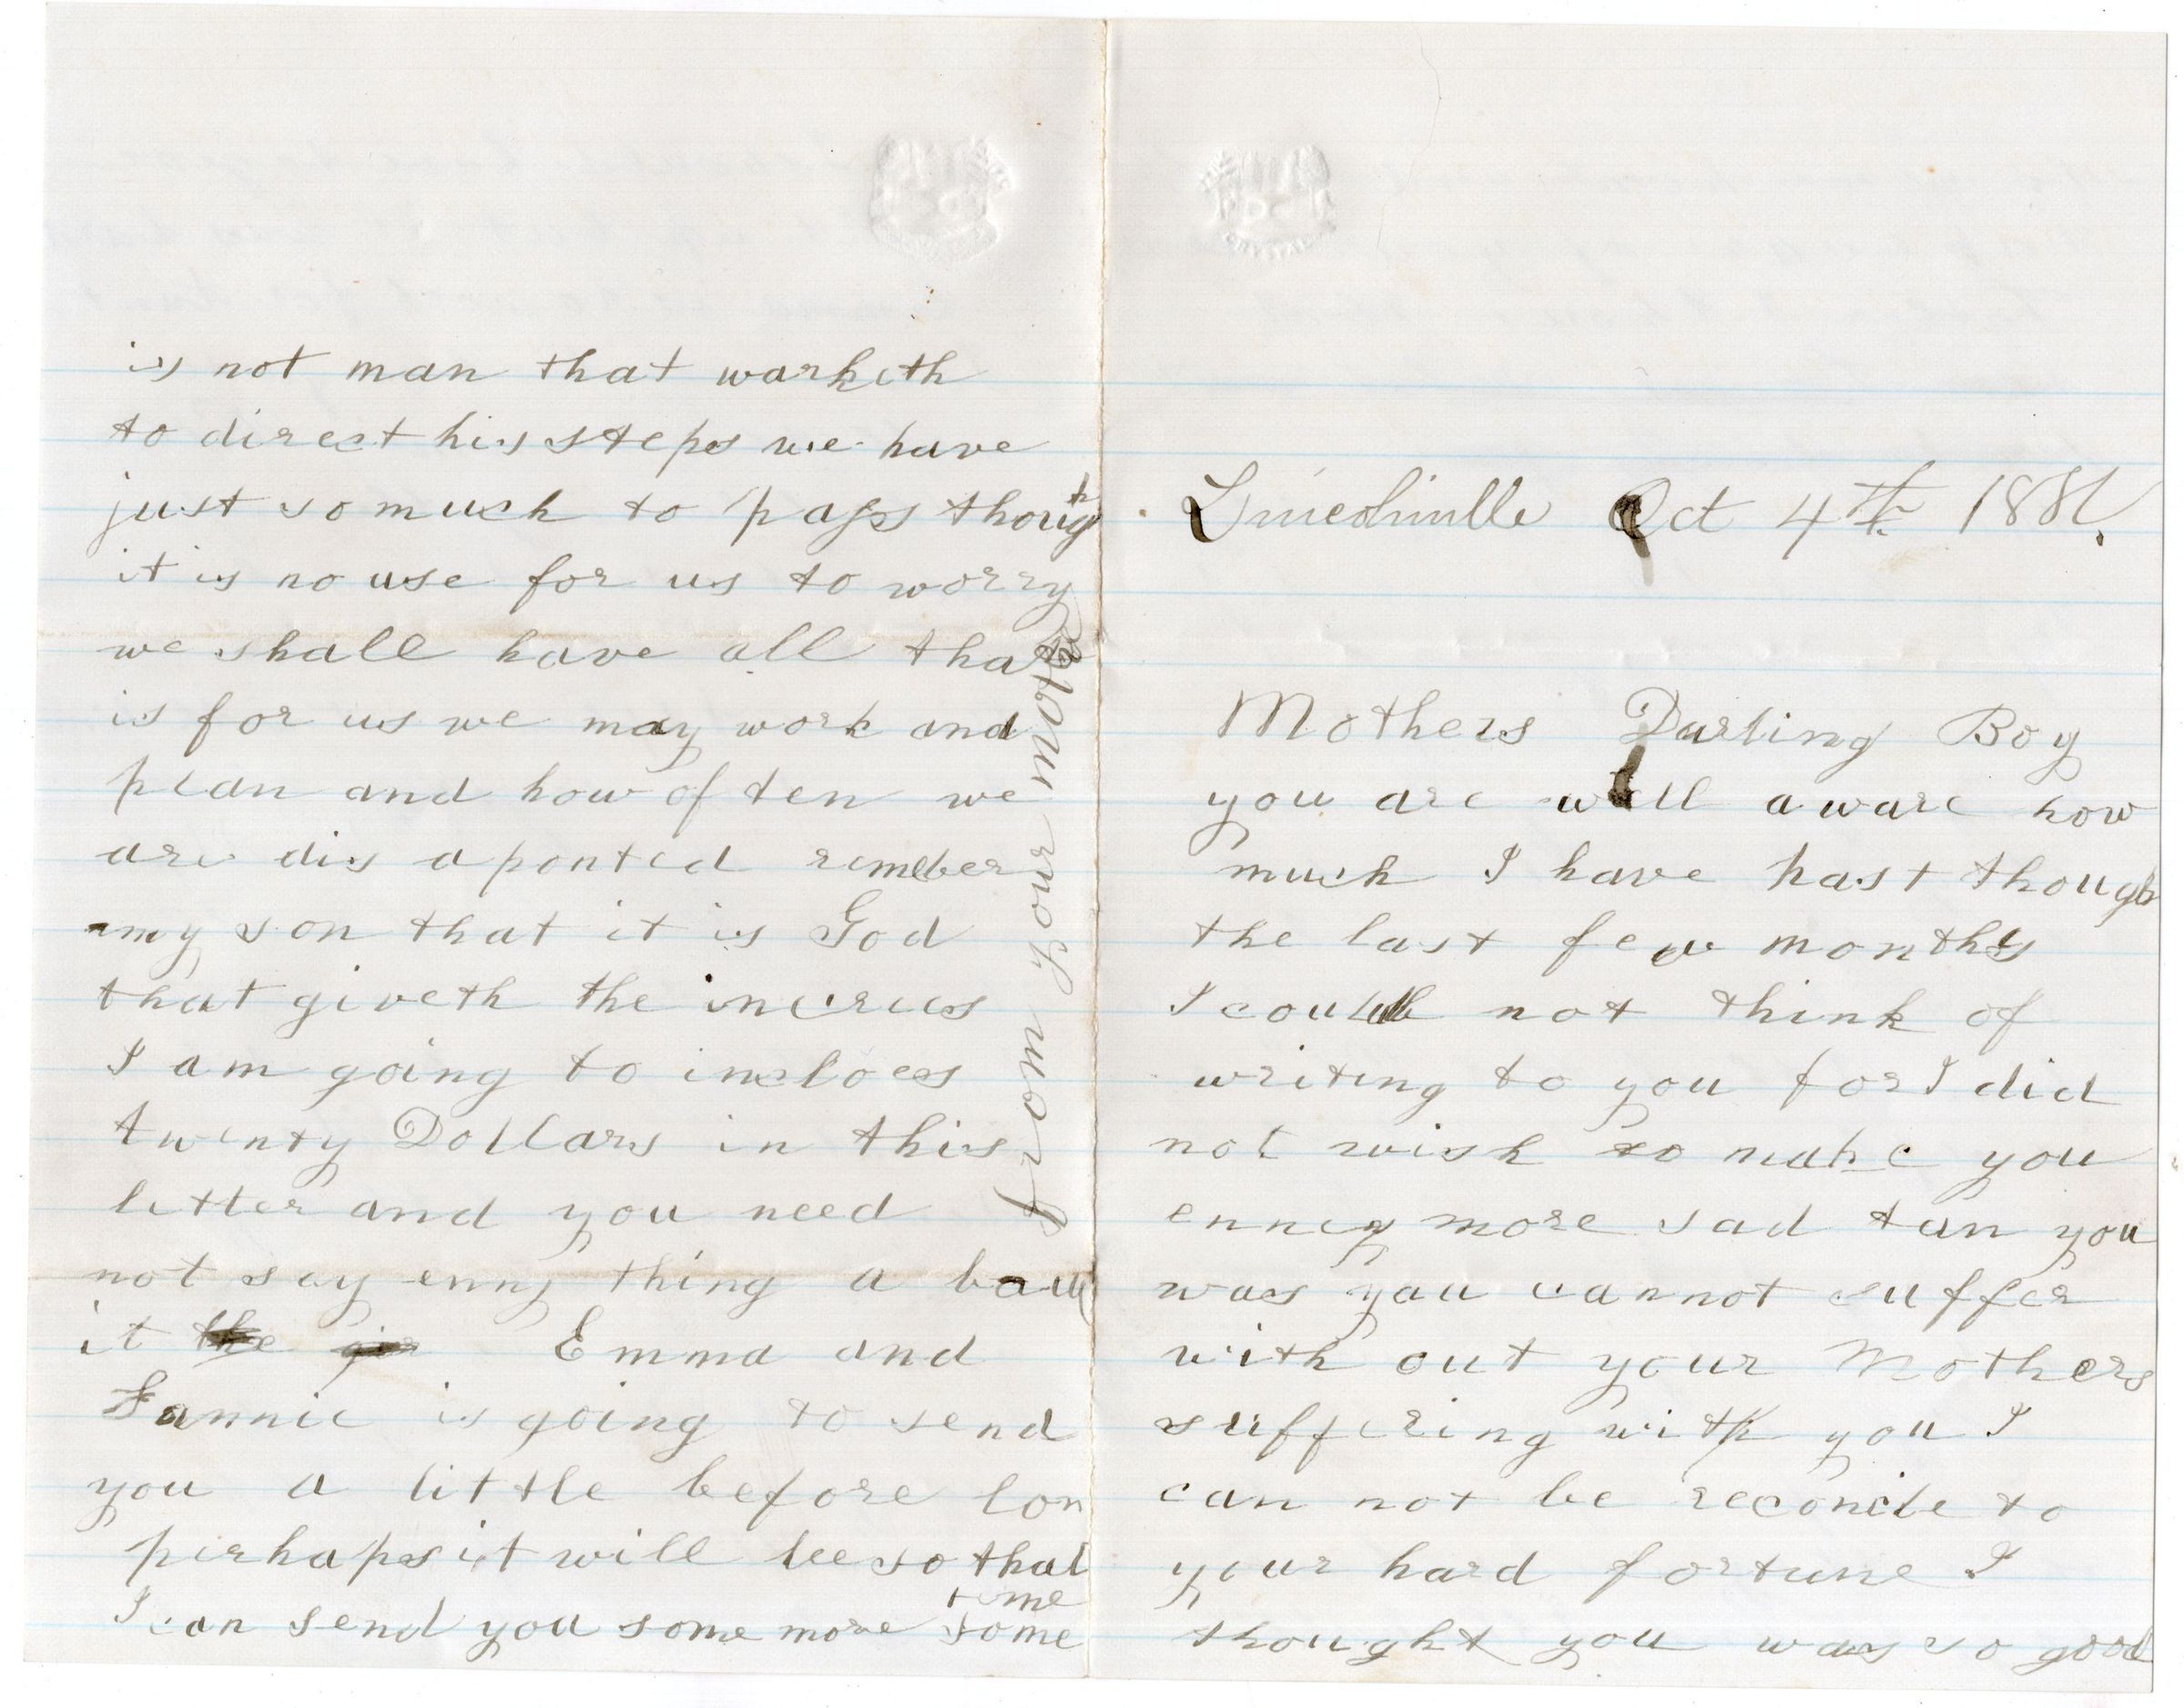 Lincolnville Oct 4th 1881.
Mothers Darling Boy
you are well aware how
much I have past though
the last few months
I could not think of
writing to you for I did
not wish to make you
enney more sad tan you
was you cannot suffer
with out your Mothers
suffering with you I
can not be reconcile to
your hard fortune I
thought you was so good
is not man that warketh
to direct his steps we have
just so much to pass though
it is no use for us to worry
we shall have all that
is for us we may work and
plan and how of ten we
are dis aponted rember
my son that it is God
that giveth the increes
I am going to incloes
twenty Dollars in this
letter and you need
not say enny thing a bout
it the gir Emma and
Fannie is going to send
you a little before lon
perhaps it will bee so that
I can send you some more some
time
from your mother